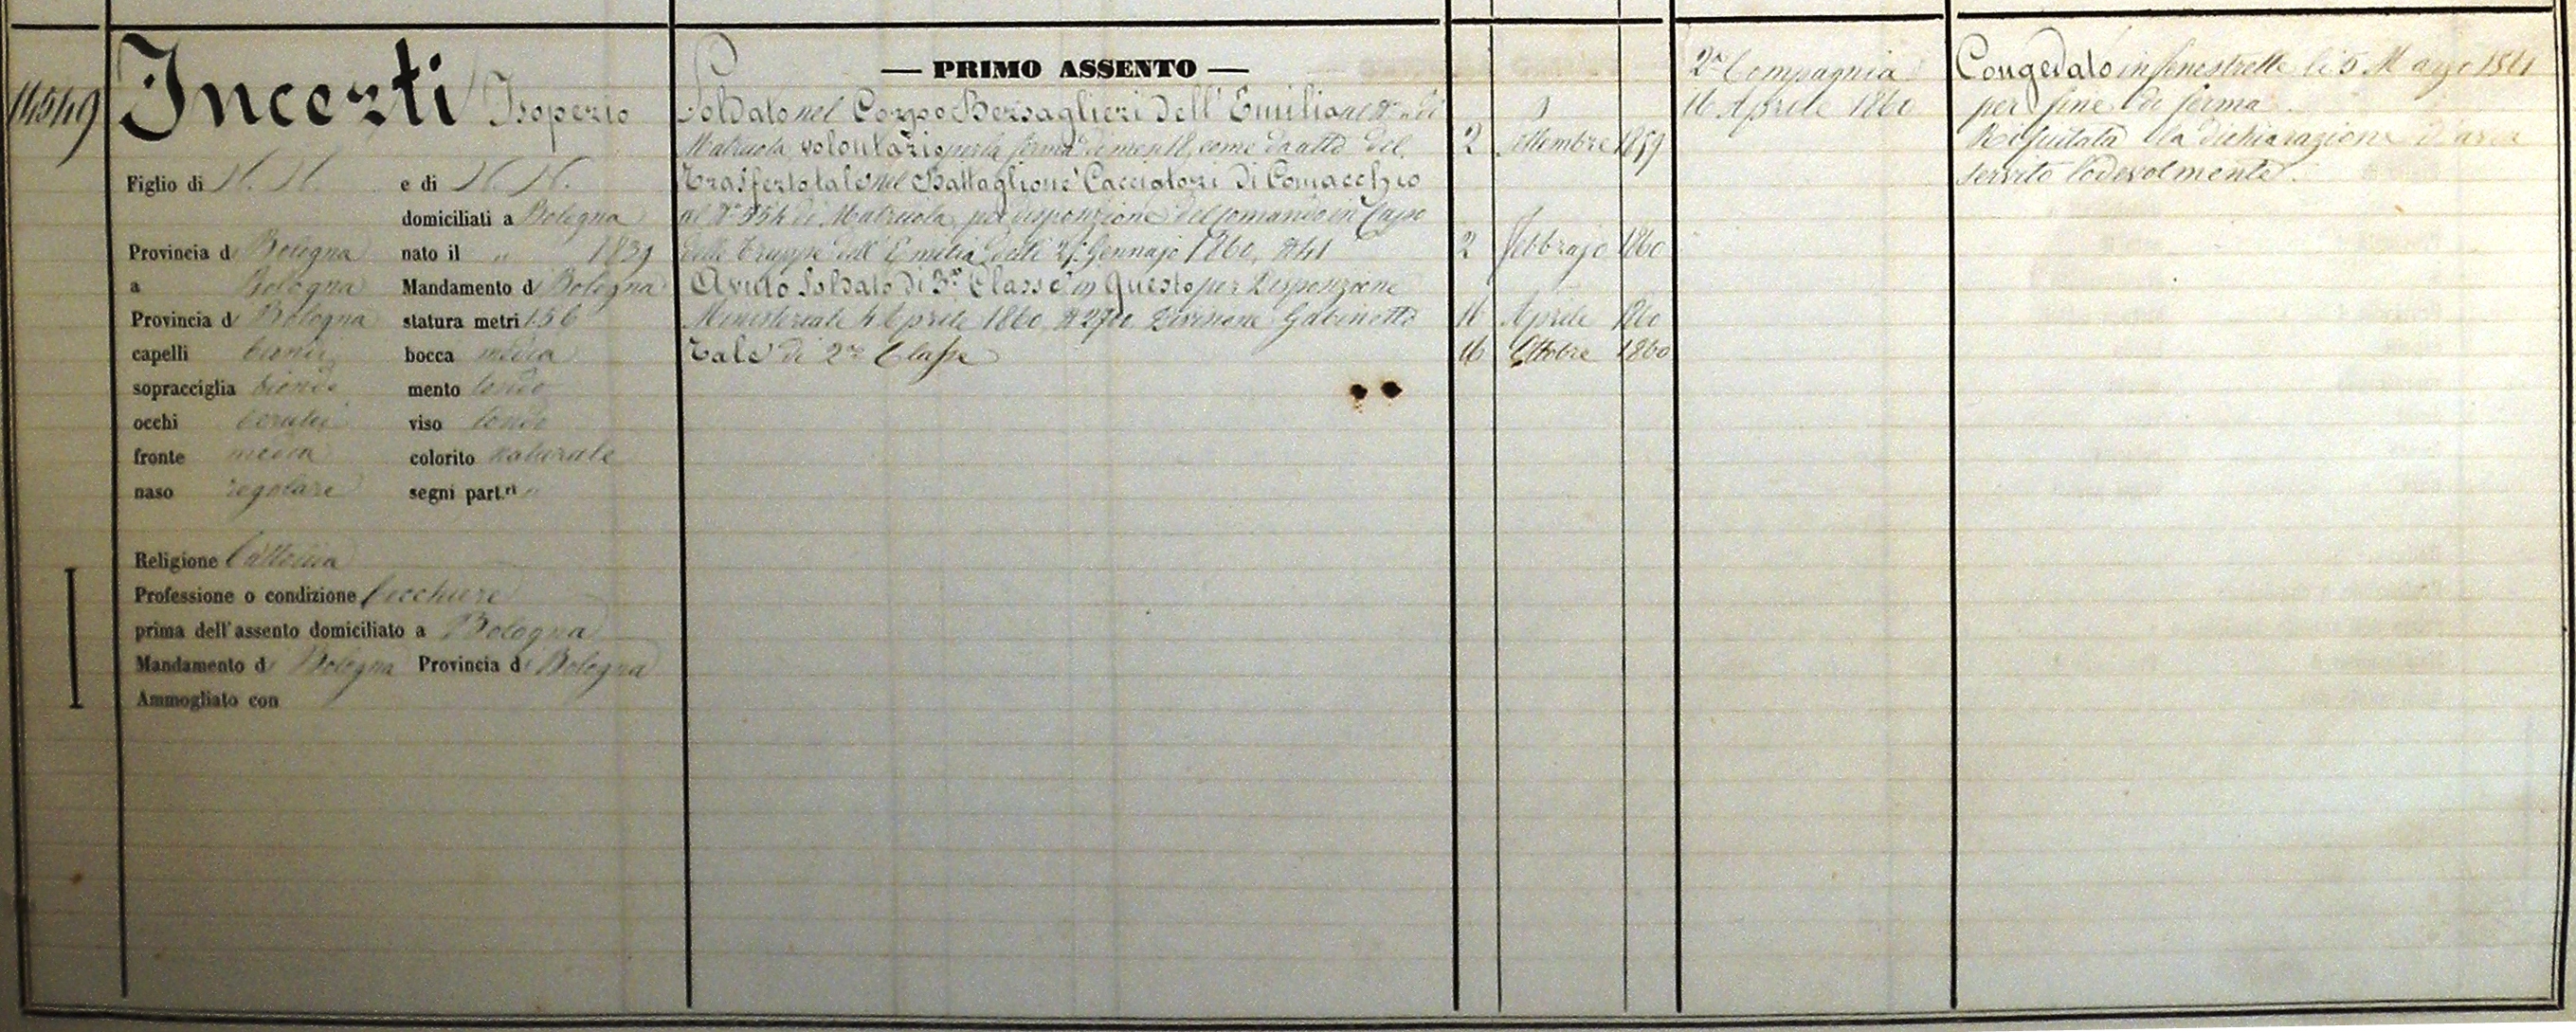 11549
Incerti Isoperio
Figlio di N. N. e di N. N.
domiciliati a Bologna
Provincia di Bologna nato il " 1839
a Bologna Mandamento di Bologna
Provincia di Bologna statura metri 1.56
capelli biondi bocca media
sopracciglia bionde mento tondo
occhi cerulei viso tondo
fronte media colorito naturale
naso regolare segni part.ri "
Religione Cattolica
Professione o condizione
prima dell'assento domiciliato a Bologna
Mandamento di Bologna Provincia di Bologna
Ammogliato con
— PRIMO ASSENTO —
Soldato nel Corpo Bersaglieri dell' Emilia al N° " di
Matricola, volontario per la ferma di mesi 18, come da atto del 2 Settembre 1859
Trasferto tale nel Battaglione Cacciatori di Comacchio
al N° 554 di Matricola, per disposizione del Comando in Capo
delle Truppe dell' Emilia delli 27 Gennajo 1860, N 41 2 Febbrajo 1860
Avuto Soldato di 3ª Classe in Questo per Disposizione
Ministeriale 4 Aprile 1860 N 2700 Divisione Gabinetto 16 Aprile 1860
Tale di 2ª Classe 16 Ottobre 1860
2ª Compagnia
16 Aprile 1860
Congedato in Fenestrelle li 5 Marzo 1861
per fine di ferma.
Rifiutata la dichiarazione d'aver
servito lodevolmente.